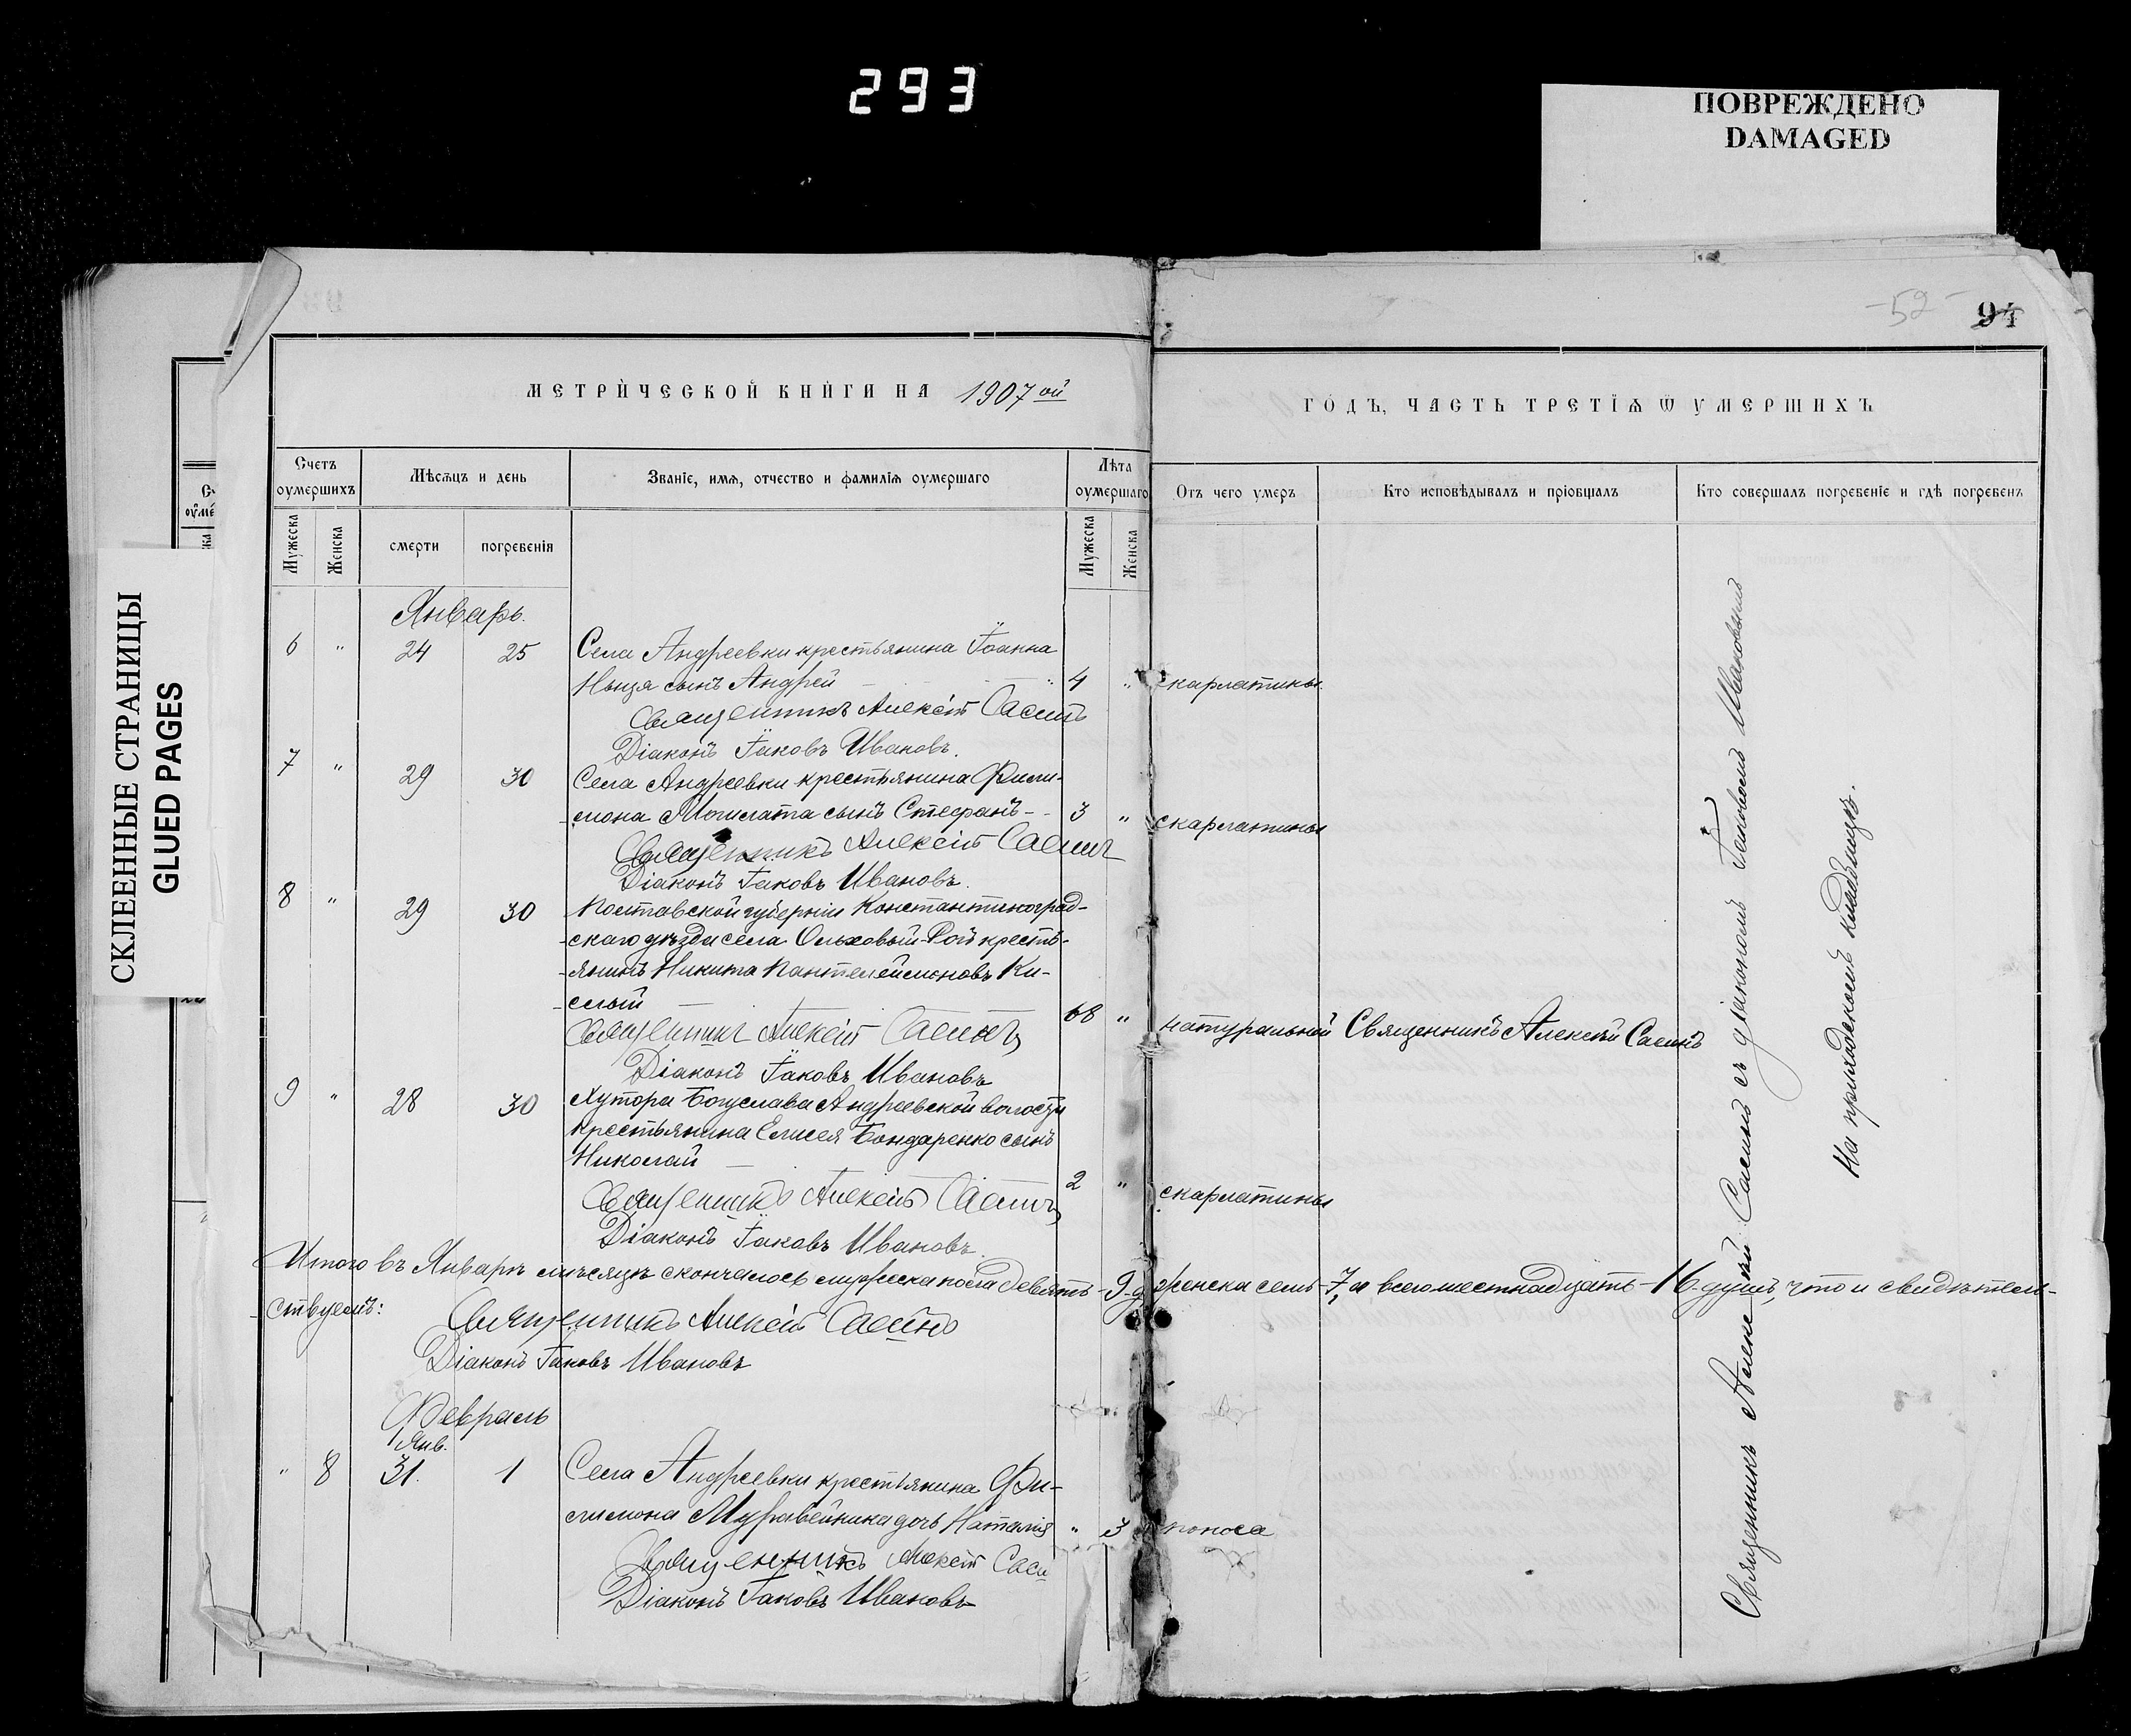 293
ПОВРЕЖДЕНО
DAMAGED
СКЛЕЕННЫЕ СТРАНИЦЫ
GLUED PAGES
-52-
94
МЕТРИЧЕСКОЙ КНИГИ НА 1907ой
ГОДЪ, ЧАСТЬ ТРЕТІЯ Ѿ УМЕРШИХЪ
Счетъ оумершихъ
Мѣсяцъ и день
Званіе, имя, отчество и фамилія оумершаго
Лѣта оумершаго
Отъ чего умеръ
Кто исповѣдывалъ и пріобщалъ
Кто совершалъ погребеніе и гдѣ погребенъ
Мужеска
Женска
смерти
погребенія
Мужеска
Женска
Январь.
6 " 24 25 Села Андреевки крестьянина Іоанна
сынъ Андрей 4 " скарлатины.
Священникъ Алексій Саеинъ
Діаконъ Іаковъ Ивановъ.
7 " 29 30 Села Андреевки крестьянина Фили-
мона сынъ Стефанъ - - 3 " скарлатины
Священникъ Алексій Саеинъ
Діаконъ Іаковъ Ивановъ.
8 " 29 30 Полтавской губерніи Константиноград-
скаго уѣзда села Ольховый-Рогъ кресть-
янинъ Никита Пантелеймоновъ Ки-
слый 68 " натуральной Священникъ Алексѣй Саеинъ
Священникъ Алексій Саеинъ
Діаконъ Іаковъ Ивановъ
9 " 28 30 Хутора Богуслава Андреевской волости
крестьянина Елисея Бондаренко сынъ
Николай 2 " скарлатины
Священникъ Алексій Саеинъ
Діаконъ Іаковъ Ивановъ.
Итого въ Январѣ мѣсяцѣ скончалось мужеска пола девять - 9. д женска семь - 7, а всего шестнадцать - 16. душъ, что и свидѣтель-
ствуемъ:
Священникъ Алексій Саеинъ
Діаконъ Іаковъ Ивановъ
Февраль
Янв.
" 8 31. 1 Села Андреевки крестьянина Фи-
лимона Муравейника дочь Наталія " 3 поноса
Священникъ Алексій
Діаконъ Іаковъ Ивановъ
Священникъ Алексѣй Саеинъ съ діакономъ Іаковомъ Ивановымъ
На приходскомъ кладбищѣ.